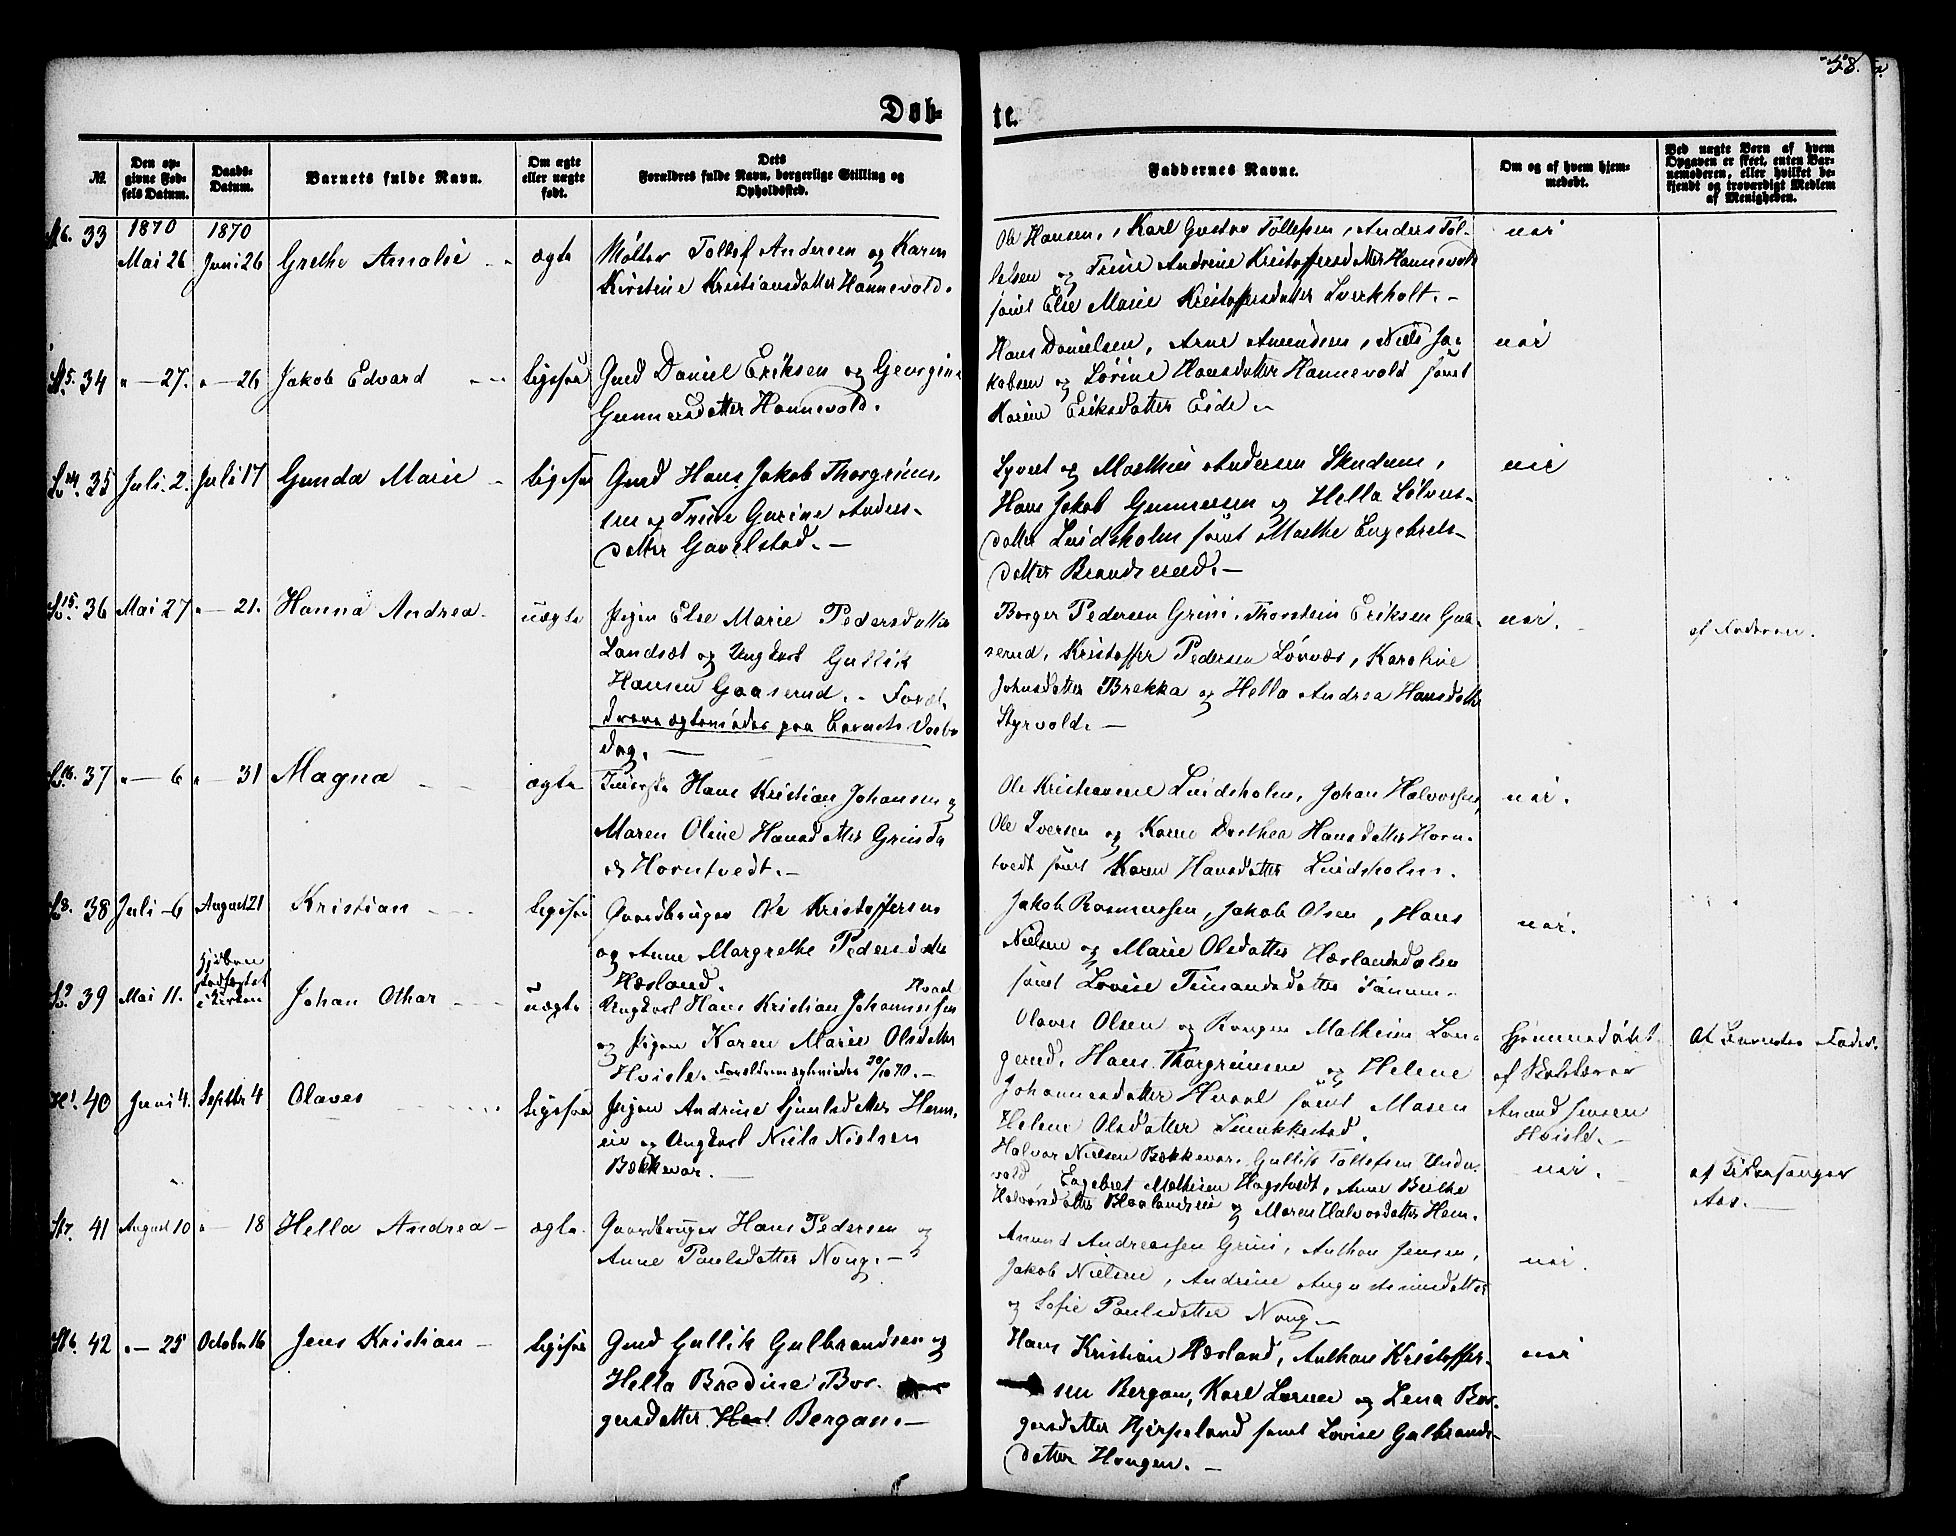 58.
Døb-
te.
No.
Den op-
givne Fød-
sels Datum.
Daabs-
Datum.
Barnets fulde Navn.
Om ægte
eller uægte
født.
Dets
Forældres fulde Navn, borgerlige Stilling og
Opholdssted.
Faddernes Navne.
Om og af hvem hjem-
medøbt.
Ved uægte Børn af hvem
Opgaven er skeet, enten Bar-
nemoderen, eller hvilket be-
kjendt og troværdigt Medlem
af Menigheden.
33
1870
Mai 26
1870
Juni 26
Grethe Amalie
ægte
Møller Tollef Andersen og Karen
Kirstine Kristiansdatter Hannevold.
Ole Hansen, Karl Gustav Tollefsen, Anders Tol-
lefsen og Trine Andrine Kristoffersdatter Hannevold
samt Else Marie Kristoffersdatter Sverkholt. -
nei
34
" - 27.
" - 26
Jakob Edvard
ligesaa
Gmd Daniel Eriksen og Georgine
Gunnersdatter Hannevold.
Hans Danielsen, Arne Amundsen, Niels Ja-
kobsen og Lovine Hansdatter Hannevold samt
Karen Eriksdatter Eide. -
nei
35
Juli. 2.
Juli 17
Gunda Marie
ligesaa
Gmd Hans Jakob Thorgrim-
sen og Trine Gurine Anders-
datter Gavelstad. -
Syvert og Marthin Andersen Skudum,
Hans Jakob Gunnersen og Hella Sølves-
datter Lindsholm samt Marthe Engebrets-
datter Brandsrud. -
nei
36
Mai 27
" - 21.
Hanna Andrea
uægte
Pigen Else Marie Pedersdatter
Landsæt og Ungkarl Gullik
Hansen Gaaserud. - Foræl-
drene ægteviedes paa Barnets Daabs-
dag. -
Borger Pedersen Grini, Thorstein Eriksen Gaa-
serud, Kristoffer Pedersen Lørvæs, Karoline
Johnsdatter Brekka og Hella Andrea Hansdatter
Styrvold. -
nei.
af Faderen.
37
" - 6
" - 31
Magna
ægte
Inderste Hans Kristian Johansen og
Maren Oline Hansdatter Grinda
og Horntvedt. -
Ole Kristiansen Lindsholm, Johan Halvorsen,
Ole Iversen og Karen Dorthea Hansdatter Horn-
tvedt samt Karen Hansdatter Lindsholm.
nei.
38
Juli - 6
August 21
Kristian
ligesaa
Gaardbruger Ole Kristoffersen
og Anne Margrethe Pedersdatter
Hæsland.
Jakob Rasmussen, Jakob Olsen, Hans
Nielsen og Marie Olsdatter Hæslandsdalen
samt Lovise Timandsdatter Fanum.
nei.
39
Mai 11.
stadfæstet
i Kirken
Johan Othar
uægte
Hvaal
Ungkarl Hans Kristian Johannessen
og Pigen Karen Marie Olsdatter
Hvisle. Forældrene ægteviedes 20/10 70. -
Olaves Olsen og Kongen Mathisen Lan-
gerud, Hans Thorgrimsen og Helene
Johannesdatter Hvaal samt Maren
Helene Olsdatter Linnkkestad.
Hjemmedøbt
af Skolelærer
Amund Jensen
Hvisle. -
Af Barnets Fader.
40
Juni 4.
Septbr 4
Olaves
ligesaa
Pigen Andrine Sjuelsdatter Hem-
eie og Ungkarl Niels Nielsen
Bækkevar. -
Halvor Nielsen Bækkevar, Gullik Tollefsen Under-
vold, Engebret Mathisen Hagstvedt, Anne Berthe
Halvorsdatter Haslandseie og Maren Halvorsdatter Hem.
nei.
af Kirkesanger
Aas.
41
August 10
" - 18
Hella Andrea
ægte
Gaardbruger Hans Pedersen og
Anne Paulsdatter Nong. -
Amund Andreassen Grini, Anthon Jensen,
Jakob Nielsen, Andrine Augustinusdatter
og Sofie Paulsdatter Nong. -
nei.
42
" - 25
October 16
Jens Kristian
ligesaa
Gmd Gullik Gulbrandsen og
Hella Bredine Bor-
gersdatter Bergan. -
Hans Kristian Hæsland, Anthon Kristoffer-
sen Bergan, Karl Larsen og Lena Bor-
gersdatter Hjerpeland samt Lovise Gulbrands-
datter Haugen. -
nei